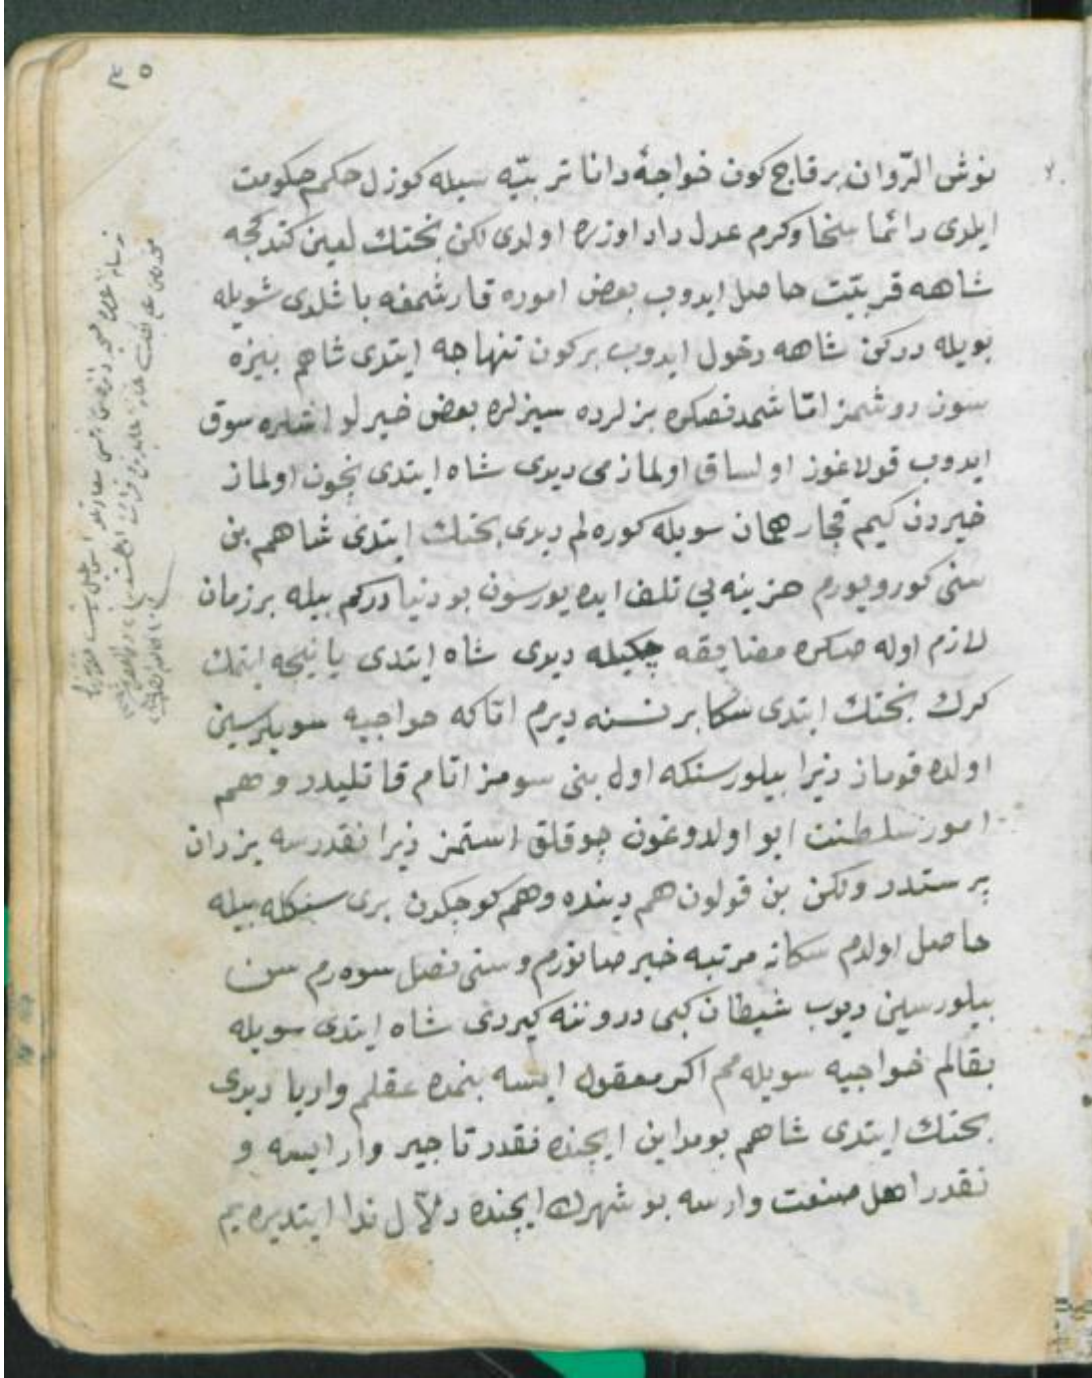 ٣٥
نوش الرّوان برقاج كون خواجهٔ دانا تربيّه سيله كوزل حكم حكومت
ايلدى دائما سخا وكرم عدل داد اوزره اولدى لكن بختك لعين كتدكجه
شاهه قربيّت حاصل ايدوب بعض اموره قارشمغه باشلدى شويله
بويله دركن شاهه دخول ايدوب بركون تنهاجه ايتدى شاهم بيزه
سوز دوشمز امّا شمدنصكره بزلرده سيزلره بعض خيرلو اشلره سوق
ايدوب قولاغوز اولساق اولمازمى ديدى شاه ايتدى نيجون اولماز
خيردن كيم قجار همان سويله كوره لم ديدى بختك ايتدى شاهم بن
سنى كورويورم هزينه يى تلف ايده يورسون بو دنيادركم بيله برزمان
لازم اوله صكره مضايقه چكيله ديدى شاه ايتدى يا نيجه ايتمك
كرك بختك ايتدى سكا بر نسنه ديرم امّا كه خواجيه سويلرسين
اولده قوماز زيرا بيلورسنكه اول بنى سومز اتام قاتليدر وهم
امور سلطنت ايو اولدوغون چوقلق استمز زيرا نقدرسه يزدان
پرستدر ولكن بن قولون هم دينده وهم كوجكدن برى سنكله بيله
حاصل اولدم سكا نه مرتبه خير صانورم وسنى نصل سوه رم سن
بيلورسين ديوب شيطان كبى دروننه كيردى شاه ايتدى سويله
بقالم خواجيه سويله مم اكر معقول ايسه بنمده عقلم واريا ديدى
بختك ايتدى شاهم بو مداين ايچنده نقدر تاجير وار ايسه و
نقدر اهل صنعت وارسه بو شهرك ايچنده دلاّل ندا ايتديره يم